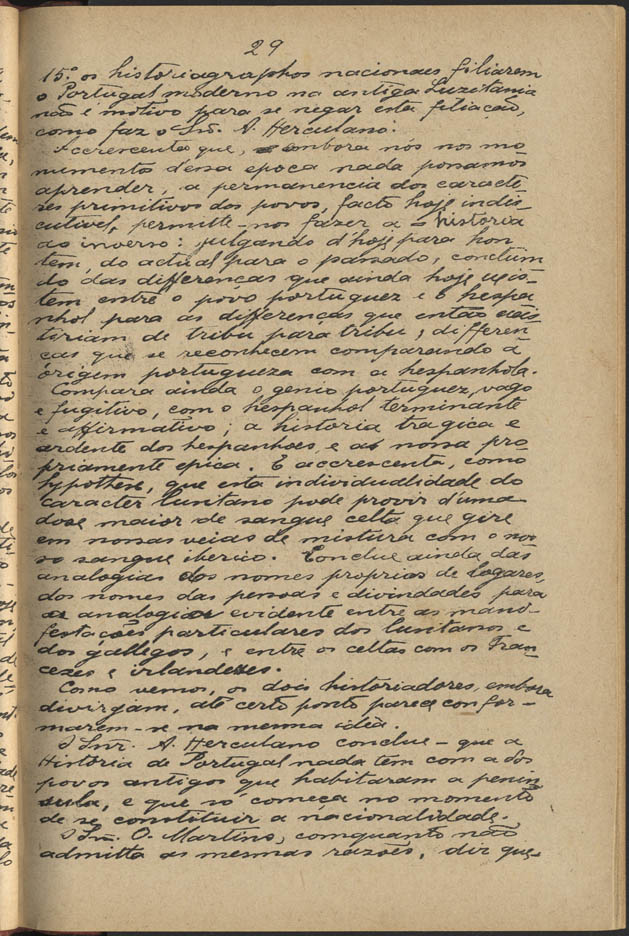 29
15.º os historiagraphos nacionaes filiarem
o Portugal moderno na antiga Luzitania
não é motivo para se negar esta filiação,
como faz o Snr. A. Herculano.
Accrescenta que, embora nós nos mo-
numentos d'essa epoca nada possamos
aprender, a permanencia dos caracte-
res primitivos dos povos, facto hoje indis-
cutivel, permitte-nos fazer a historia
ao inverso: julgando d'hoje para hon-
tem, do actual para o passado, concluin-
do das differenças que ainda hoje exis-
tem entre o povo portuguez e o hespa-
nhol para as differenças que então exis-
tiriam de tribu para tribu; differen-
ças que se reconhecem comparando a
origem portugueza com a hespanhola.
Compara ainda o genio portuguez, vago
e fugitivo, com o hespanhol terminante
e affirmativo; a historia tragica e
ardente dos hespanhoes, e a nossa pro-
priamente epica. E accrescenta, como
hypothese, que esta individualidade do
caracter lusitano pode provir d'uma
dose maior de sangue celta que gire
em nossas veias de mistura com o nos-
so sangue iberico. Conclue ainda das
analogias dos nomes proprios de logares,
dos nomes das pessoas e divindades para
a analogia evidente entre as mani-
festações particulares dos lusitanos e
dos gallegos, e entre os celtas com os Fran-
cezes e irlandezes.
Como vemos, os dois historiadores, embora
divirjam, até certo ponto parece confor-
marem-se na mesma idéa.
O Snr. A. Herculano conclue - que a
Historia de Portugal nada tem com a dos
povos antigos que habitaram a penin-
sula, e que só começa no momento
de se constituir a nacionalidade.
O Snr. O. Martins, comquanto não
admitta as mesmas razões, diz que